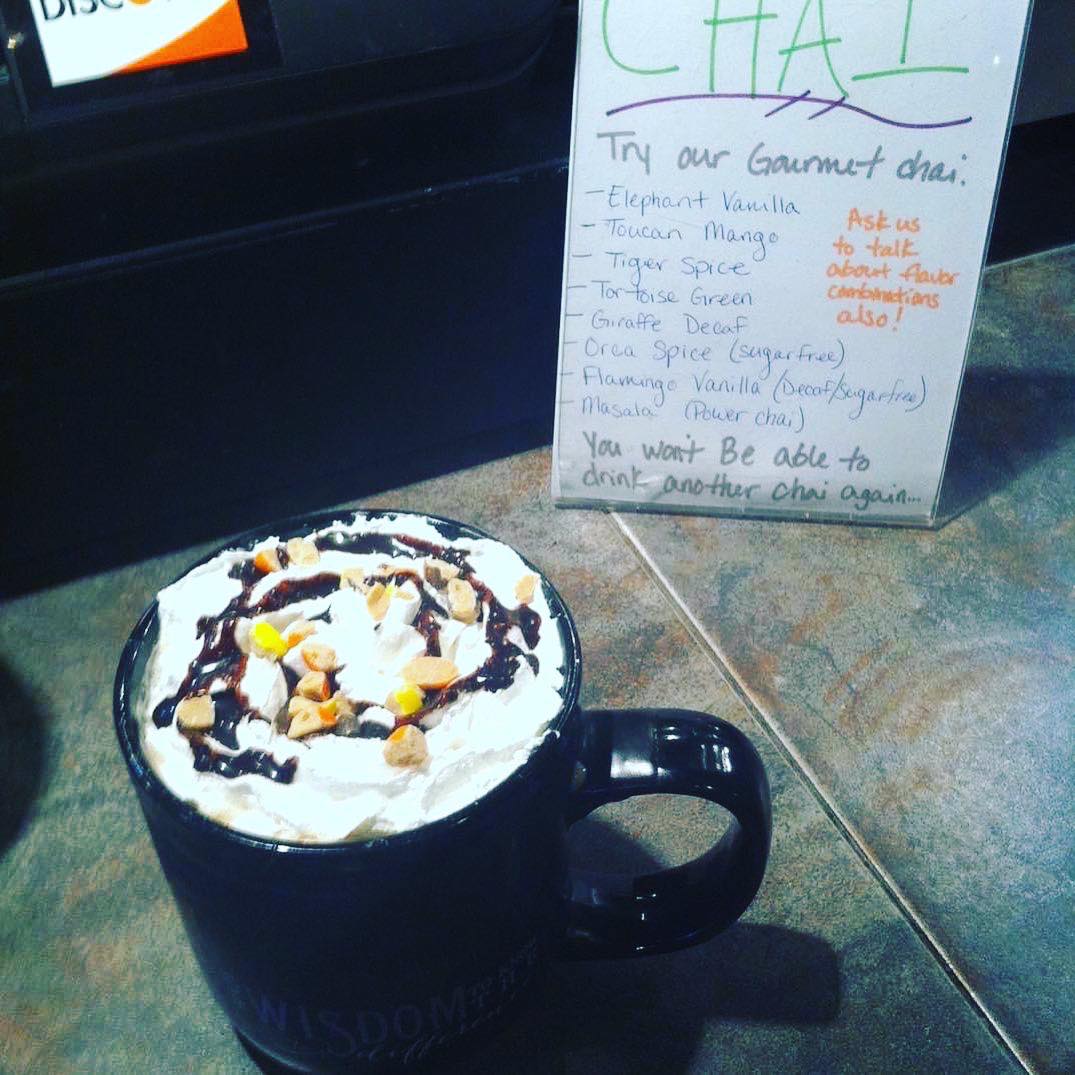 CHAI
Try our Gourmet chai:
- Elephant Vanilla
- Toucan Mango
- Tiger Spice
- Tortoise Green
- Giraffe Decaf
- Orca Spice (sugarfree)
- Flamingo Vanilla (Decaf/sugarfree)
- Masala (Power chai)
Ask us
to talk
about flavor
combinations
also!
You won't Be able to
drink another chai again...
WISDOM